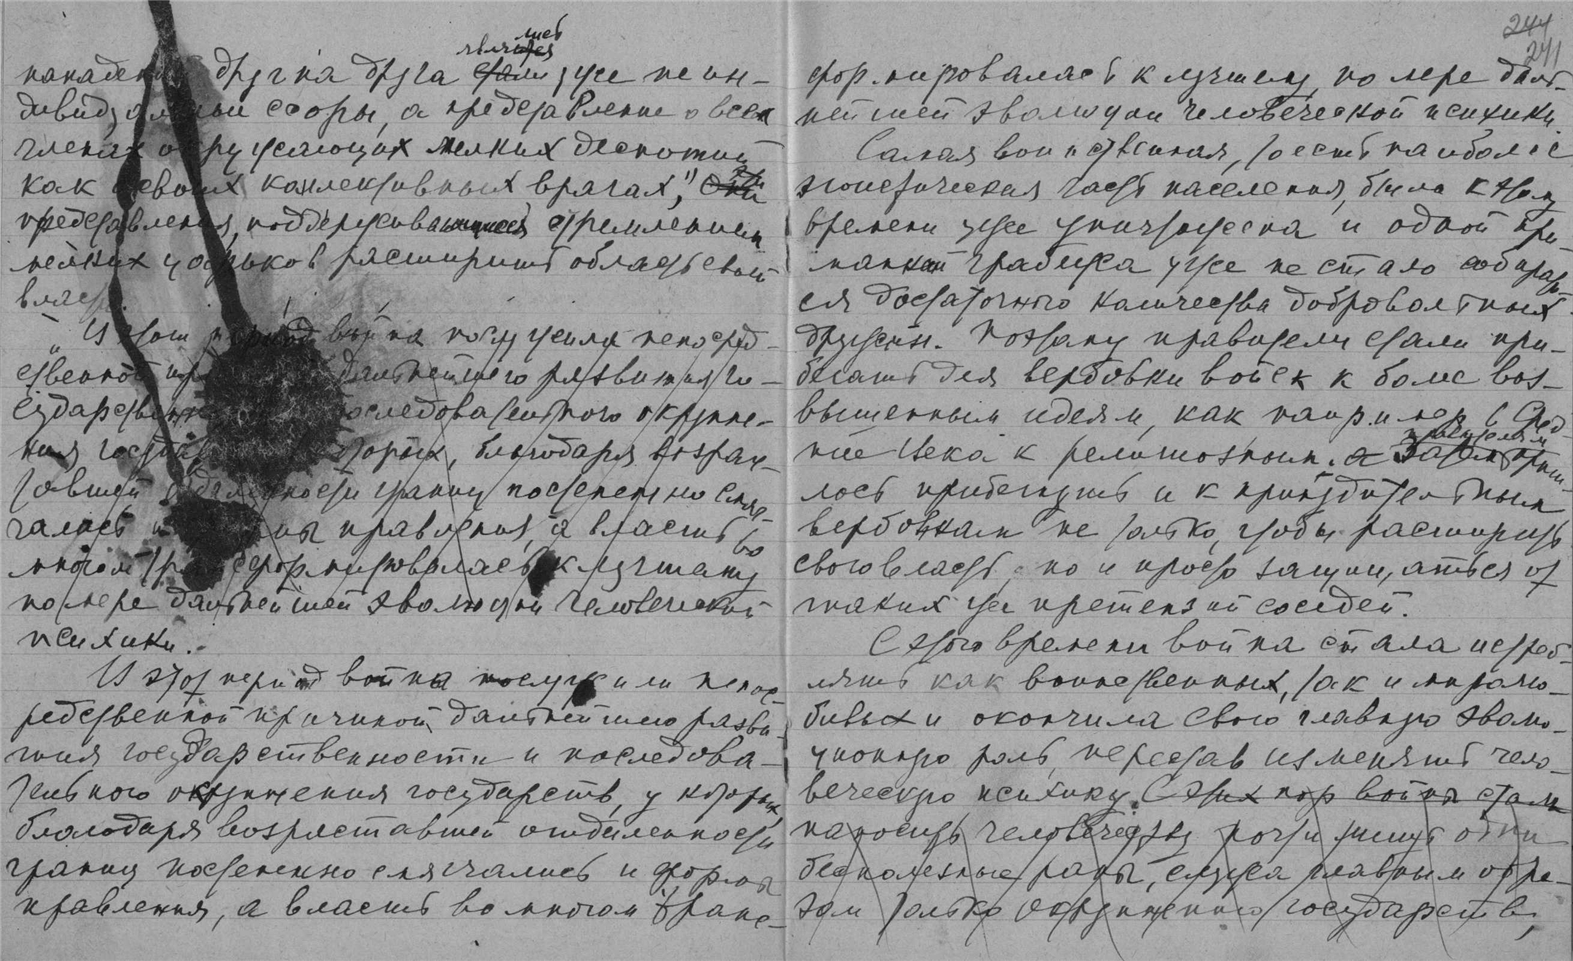 нападения друг на друга стали уже не ин-
являлись
дивидуальные ссоры, а представление о всех
членах окружающих мелких деспотий
как о своих коллективных врагах,"
представления, поддерживавшиеся стремлением
мелких царьков расширить область своей
власти.
„И этот период война послужила непосред-
ственной дальнейшего развития го-
сударственности последовательного окрупне-
ния государств которых, благодаря возрас-
тавшей отдаленности границ постепенно смяг-
чались и формы правления, а власть во
многом трансформировалась к лучшему
по мере дальнейшей эволюции человеческой
психики.
И этот период война послужили непос-
редственной причиной дальнейшего разви-
тия государственности и последова-
тельного окрупнения государств, у которых,
благодаря возраставшей отдаленности
границ постепенно смягчались и формы
правления, а власть во многом транс-
244
241
формировалась к лучшему, по мере даль-
нейшей эволюции человеческой психики.
Самая воинственная, то есть наиболее
эгоистическая часть населения, была к этому
времени уже уничтожена и одной при-
манкой грабежа уже не стало собирать-
ся достаточного количества добровольных
дружин. Поэтому правители стали при-
бегать для вербовки войск к более воз-
вышенным идеям, как например в Сред-
ние века к религиозным. а затем приш-
правителям
лось прибегнуть и к принудительным
вербовкам не только, чтобы расширить
свою власть, но и просто защищаться от
таких же претензий соседей.
С этого времени война стала истреб-
лять как воинственных, так и миролю-
бивых и окончила свою главную эволю-
ционную роль, перестав изменять чело-
веческую психику. С этих пор войны стали
наносить человечеству почти лишь одни
бесполезные раны, служа главным обра-
зом только окрупнению государств,